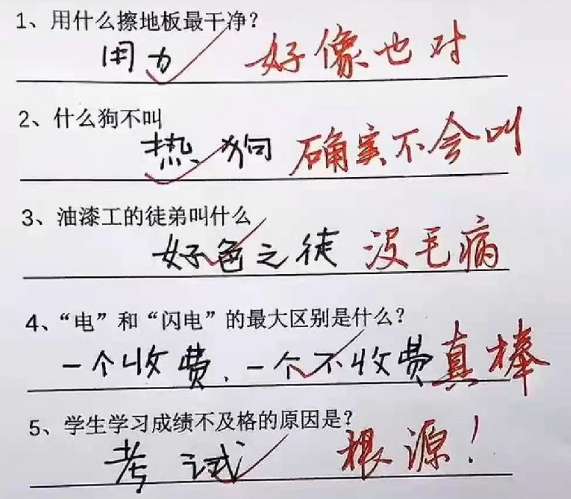 1、用什么擦地板最干净？
用力 好像也对
2、什么狗不叫
热狗 确实不会叫
3、油漆工的徒弟叫什么
好色之徒 没毛病
4、“电”和“闪电”的最大区别是什么？
一个收费、一个不收费 真棒
5、学生学习成绩不及格的原因是？
考试 根源！